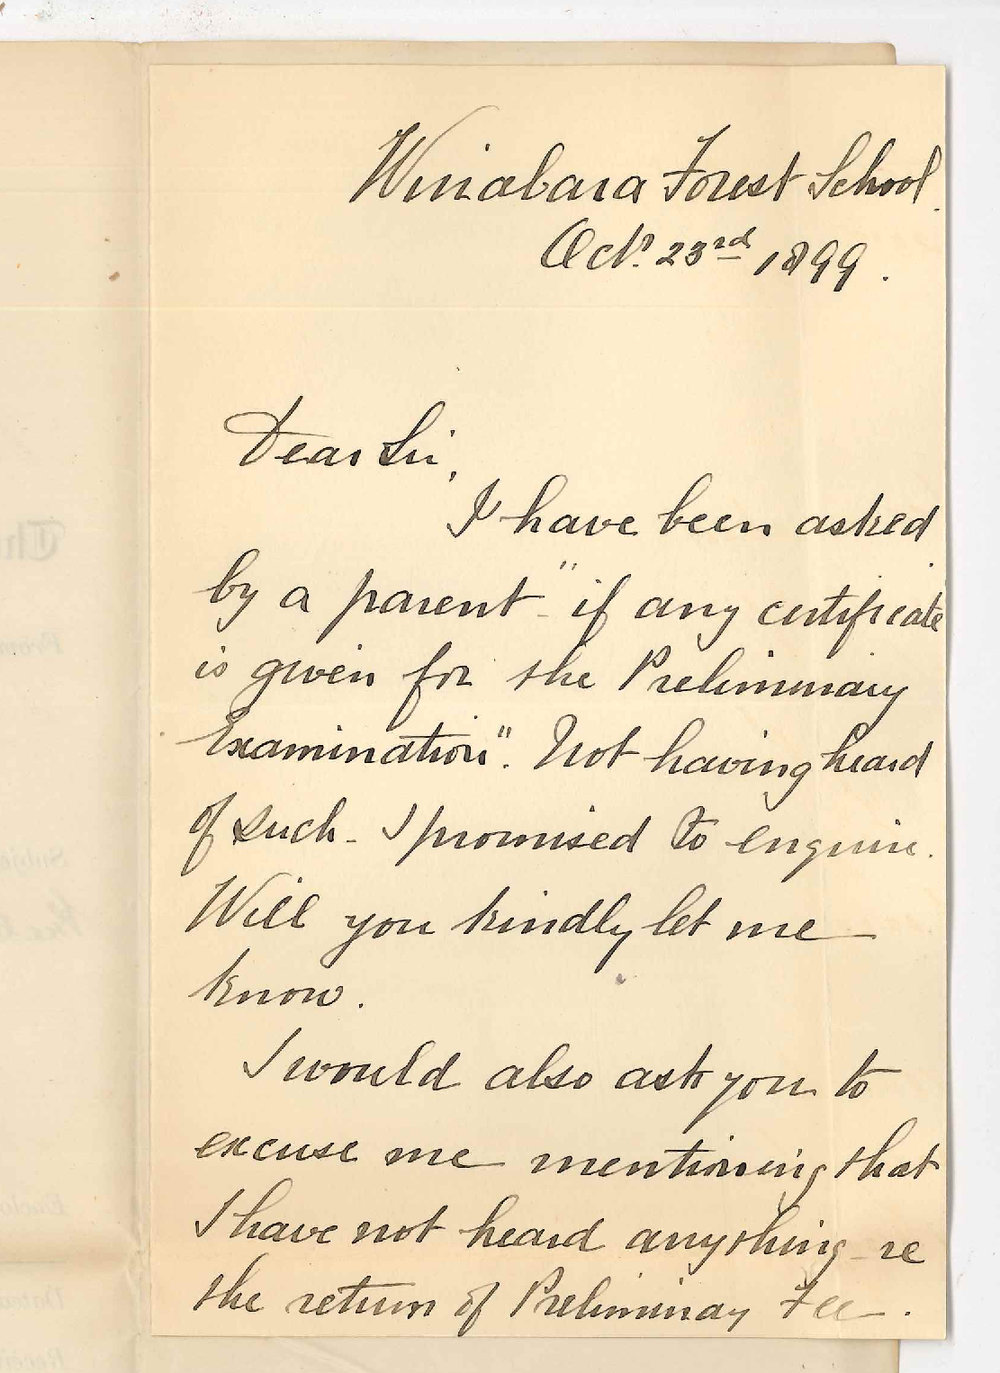 Wirrabara Forest School.
Oct. 23rd 1899.
Dear Sir,
I have been asked
by a parent "if any certificate
is given for the Preliminary
Examination". Not having heard
of such - I promised to enquire.
Will you kindly let me
know.
I would also ask you to
excuse me mentioning that
I have not heard anything re
the return of Preliminay Fee.